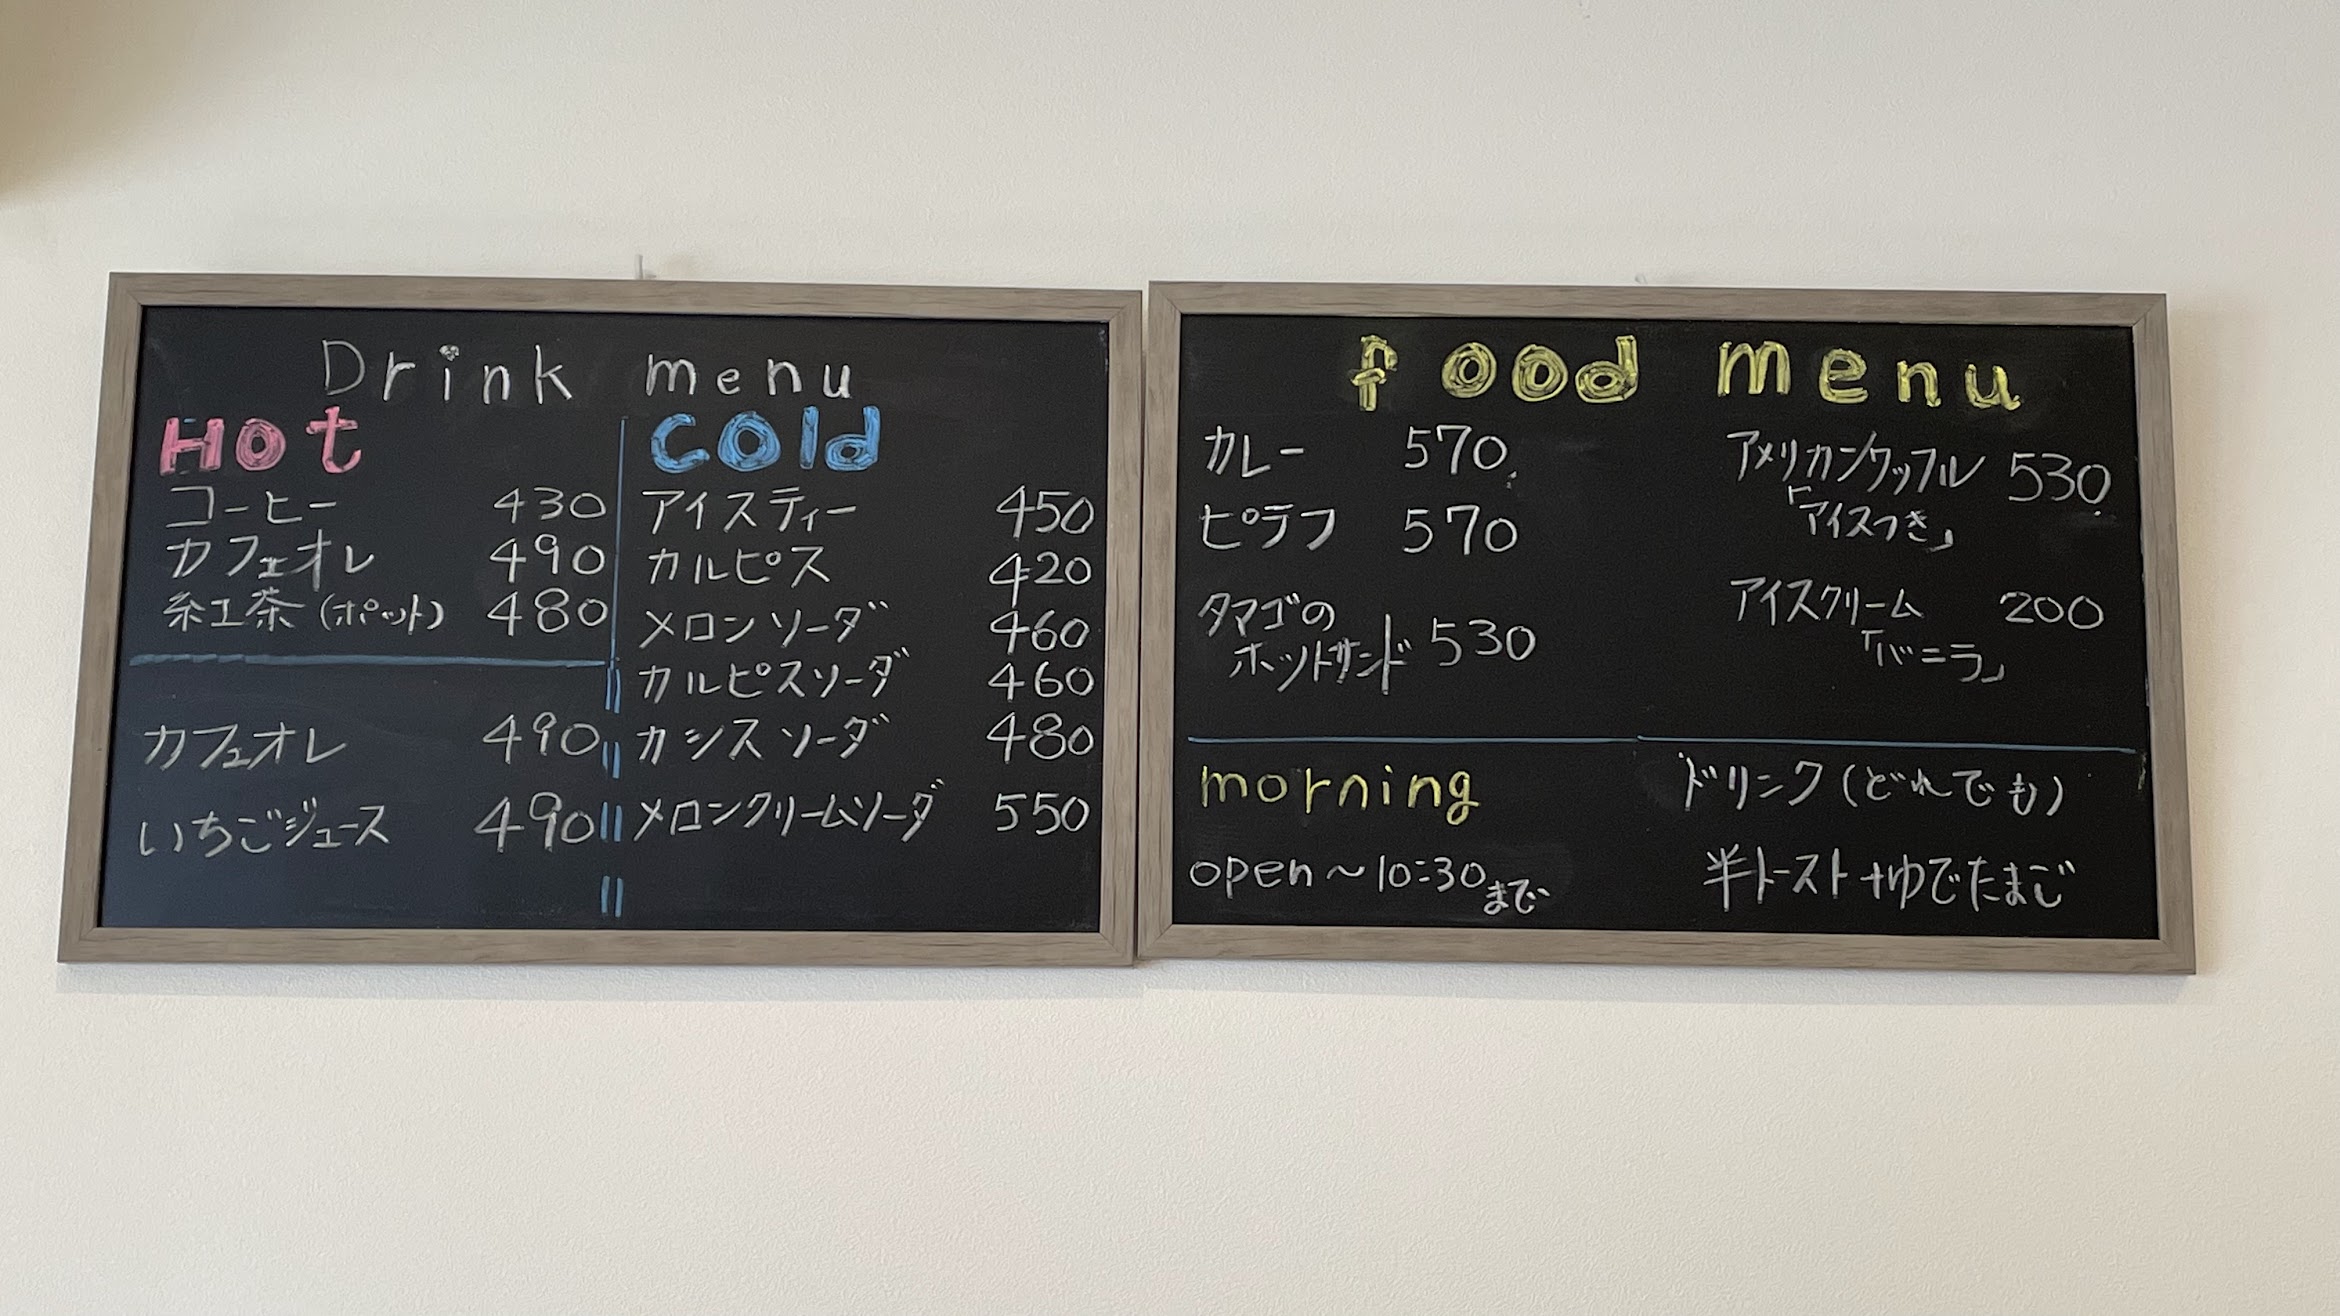 Drink menu
Hot
コーヒー 430
カフェオレ 490
紅茶(ポット) 480
カフェオレ 490
いちごジュース 490
Cold
アイスティー 450
カルピス 420
メロンソーダ 460
カルピスソーダ 460
カシスソーダ 480
メロンクリームソーダ 550
food menu
カレー 570
ピラフ 570
タマゴの
ホットサンド 530
アメリカンワッフル 530
「アイスつき」
アイスクリーム 200
「バニラ」
morning
open~10:30まで
ドリンク(どれでも)
半トースト+ゆでたまご